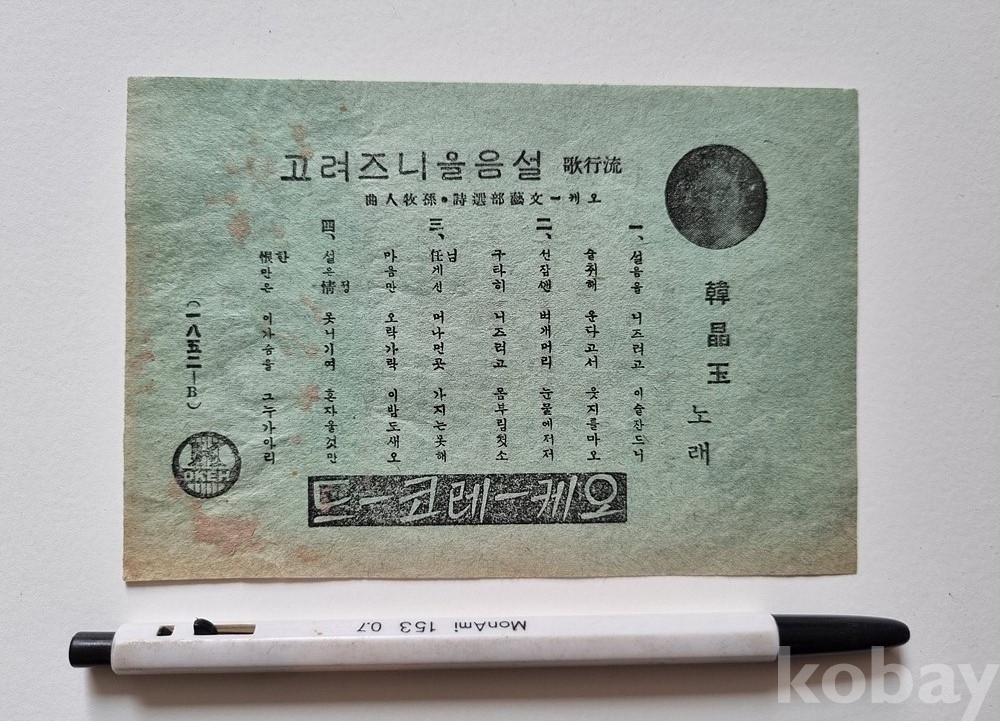 韓晶玉 노래
流行歌 설음을니즈려고
오케ー文藝部選詩・孫牧人曲
一、설음을 니즈려고 이술잔드니
술취해 운다고서 웃지를마오
二、선잠깬 벼개머리 눈물에저저
구타히 니즈려고 몸부림첫소
三、任님게신 머나먼곳 가지는못해
마음만 오락가락 이밤도새오
四、설은情정 못니기여 혼자울것만
恨한만은 이가슴을 그누가아리
(一八五二—B)
OKEH
오케ー레코ー드
MonAmi 153 0.7
kobay